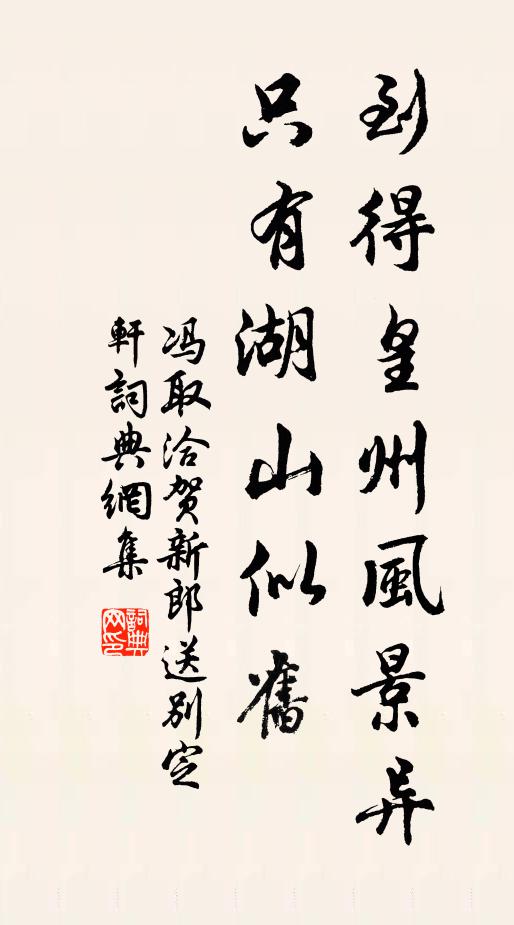 到得皇州風景异
只有湖山似舊
冯取洽贺新郎送别定
軒詞典網集
詞典网印